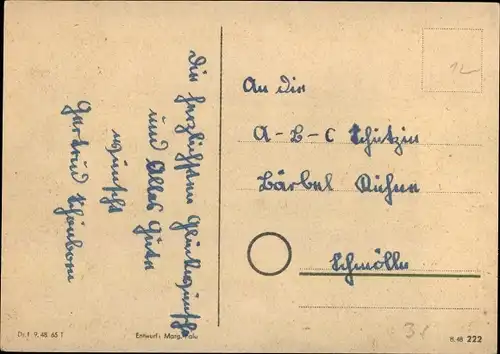 Die herzlichsten Glückwünsche
und Alles Gute
wünscht
Gertrud Schönborn
An die
A-B-C Schützin
Bärbel Kühne
Schmölln
Dr. 1 9. 48 65 T
Entwurf: Marg.
8.48 222